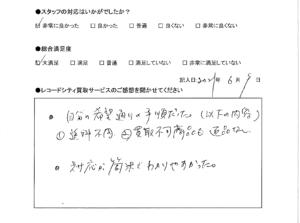 ●スタッフの対応はいかがでしたか？
☑非常に良かった □良かった □普通 □良くない □非常に良くない
●総合満足度
☑大満足 □満足 □普通 □満足していない □非常に満足していない
記入日:2021年 6月 5日
●レコードシティ買取サービスのご感想を聞かせてください
◎ 自分の希望通りの手順だった。(以下の内容)
① 送料不用 ②買取不可商品も返品なし
◎ 対応が簡潔でわかりやすかった。